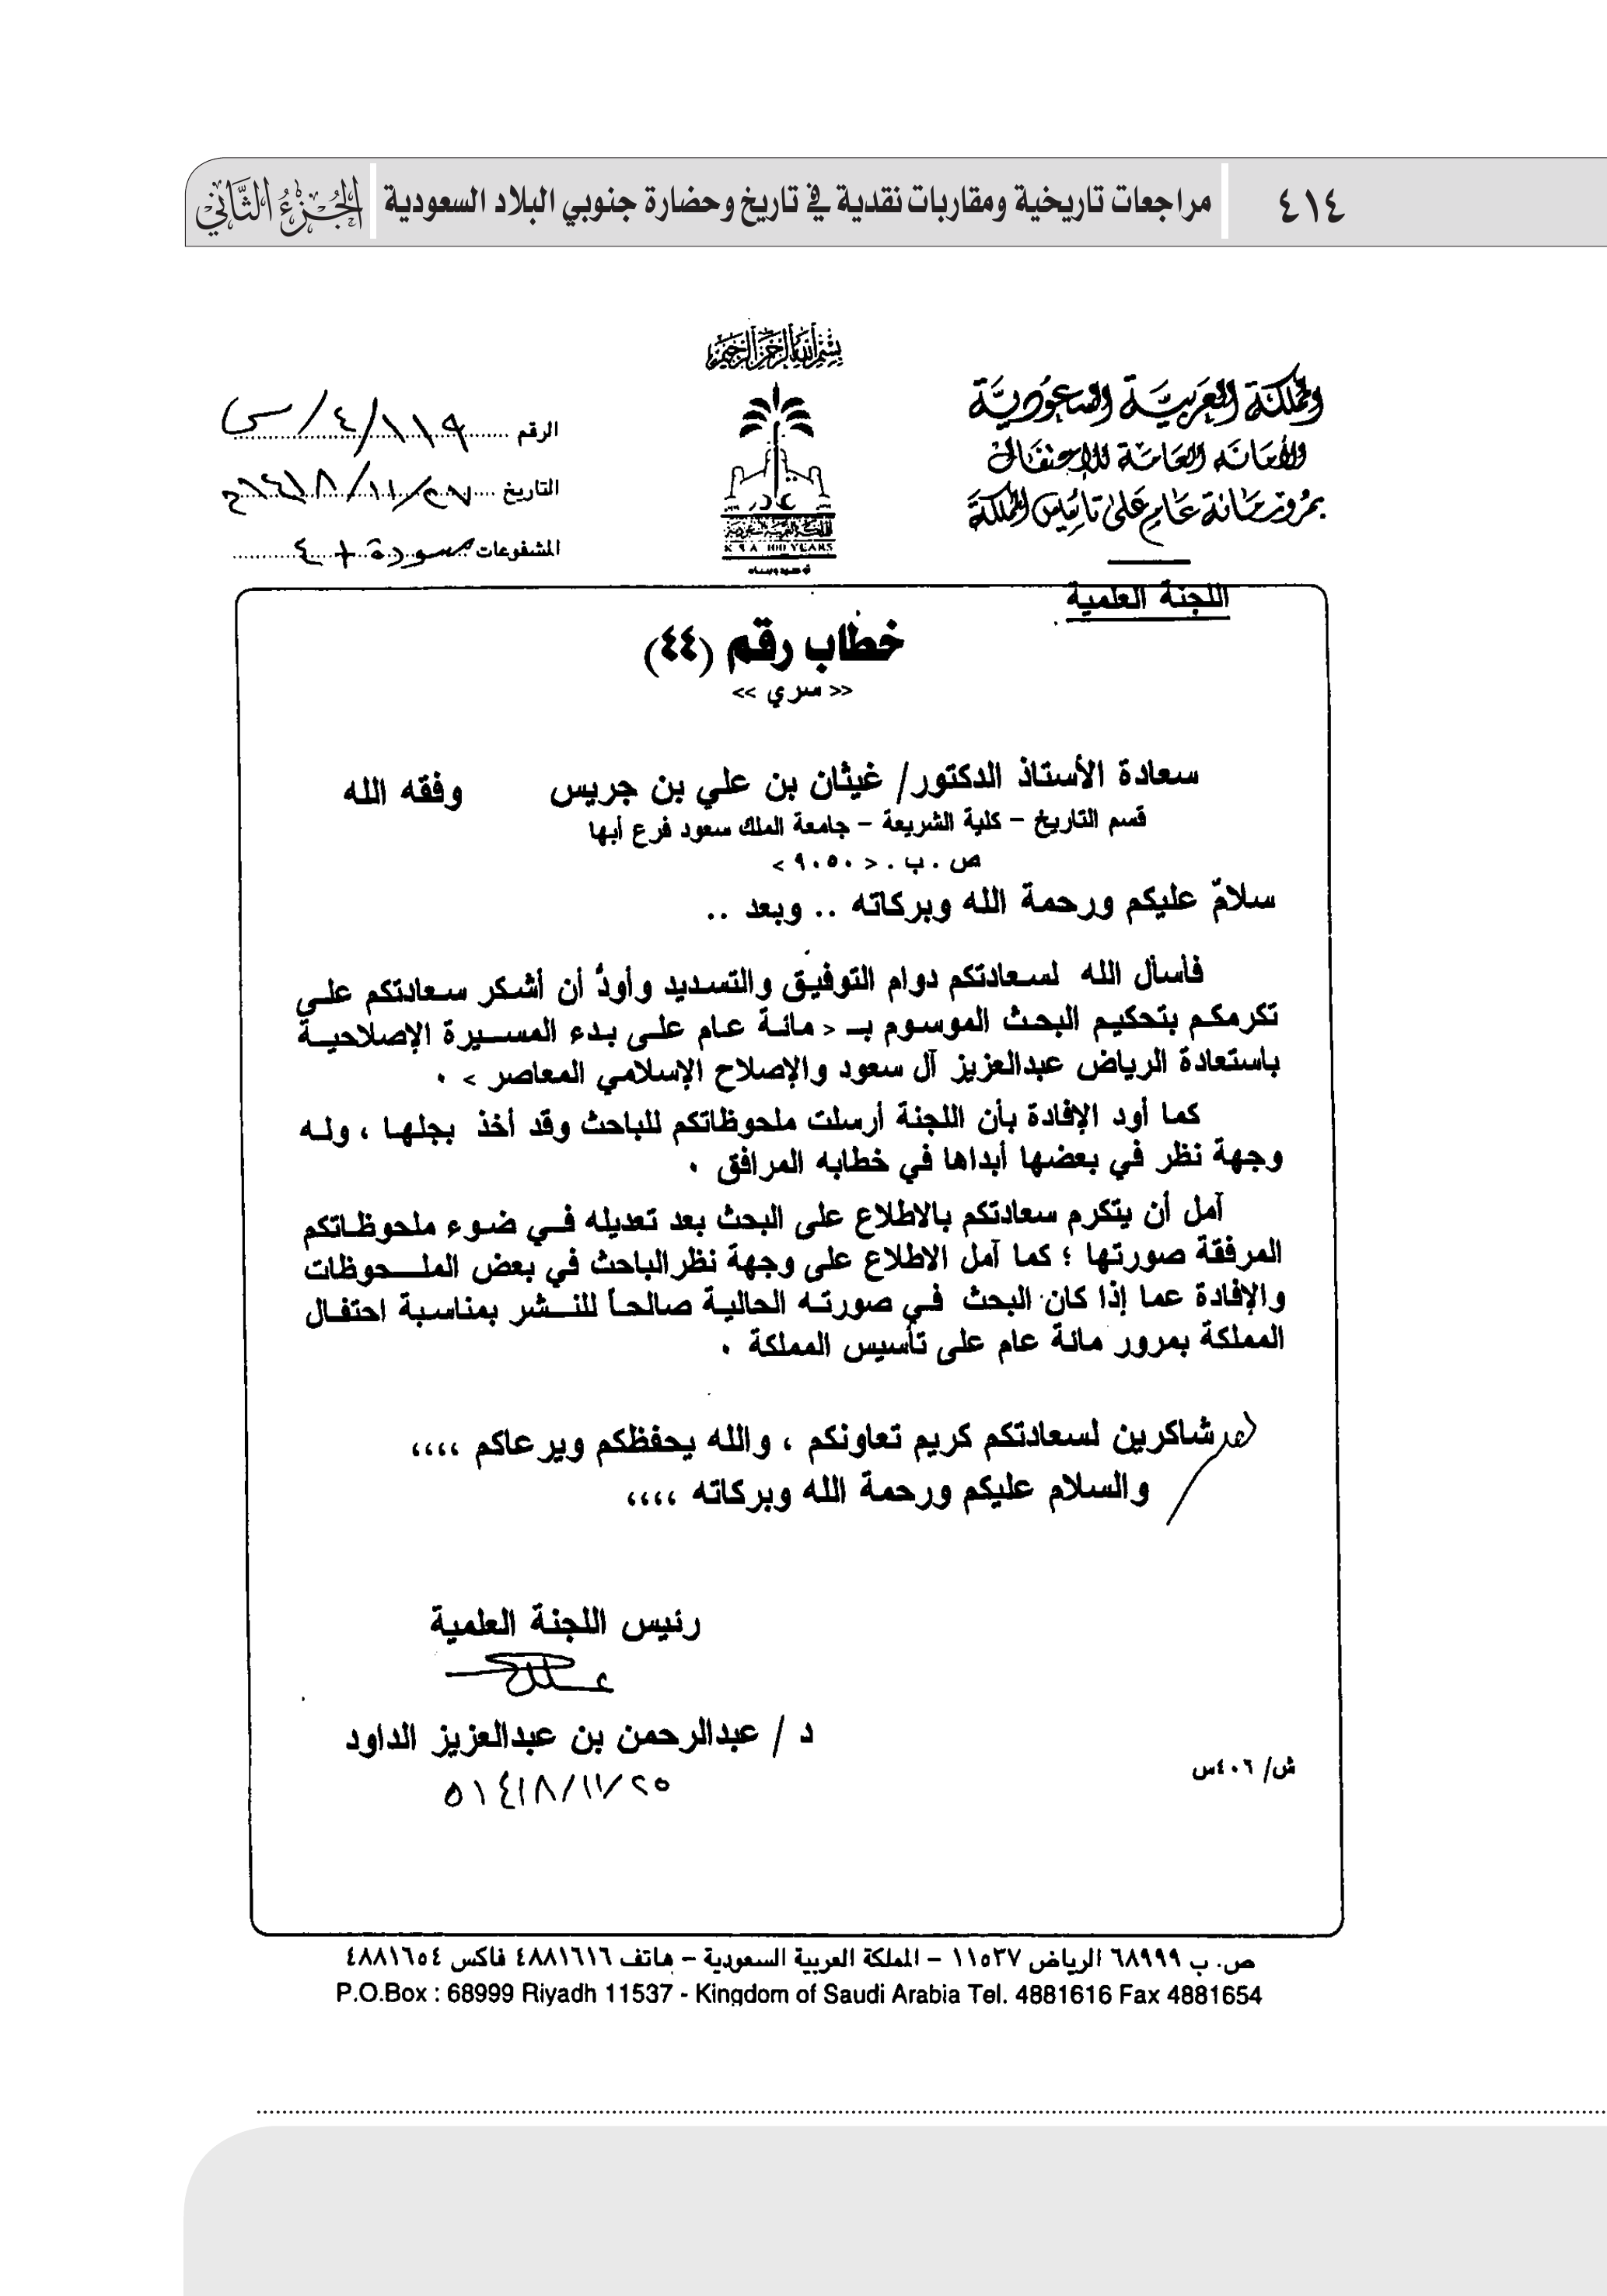 ٤١٤
مراجعات تاريخية ومقاربات نقدية في تاريخ وحضارة جنوبي البلاد السعودية
الجزء الثاني
بسم الله الرحمن الرحيم
المملكة العربية السعودية
الأمانة العامة للاحتفال
بمرور مائة عام على تأسيس المملكة
اللجنة العلمية
المملكة العربية السعودية
K S A 100 YEARS
الرقم ١١٩/٤/س
التاريخ ٢٧/١١/١٤١٨ه
المشفوعات مسودة + ٤
خطاب رقم (٤٤)
<< سري >>
سعادة الأستاذ الدكتور/ غيثان بن علي بن جريس وفقه الله
قسم التاريخ - كلية الشريعة - جامعة الملك سعود فرع أبها
ص . ب . < ٩٠٥٠ >
سلامٌ عليكم ورحمة الله وبركاته .. وبعد ..
فأسأل الله لسعادتكم دوام التوفيق والتسديد وأودُّ أن أشكر سعادتكم على
تكرمكم بتحكيم البحث الموسوم بـ < مائة عام على بدء المسيرة الإصلاحية
باستعادة الرياض عبدالعزيز آل سعود والإصلاح الإسلامي المعاصر > .
كما أود الإفادة بأن اللجنة أرسلت ملحوظاتكم للباحث وقد أخذ بجلها ، وله
وجهة نظر في بعضها أبداها في خطابه المرافق .
آمل أن يتكرم سعادتكم بالاطلاع على البحث بعد تعديله في ضوء ملحوظاتكم
المرفقة صورتها ؛ كما آمل الاطلاع على وجهة نظر الباحث في بعض الملحوظات
والإفادة عما إذا كان البحث في صورته الحالية صالحاً للنشر بمناسبة احتفال
المملكة بمرور مائة عام على تأسيس المملكة .
شاكرين لسعادتكم كريم تعاونكم ، والله يحفظكم ويرعاكم ،،،،
والسلام عليكم ورحمة الله وبركاته ،،،،
رئيس اللجنة العلمية
د / عبدالرحمن بن عبدالعزيز الداود
٢٥/١١/١٤١٨ه
ش/ ٤٠٦س
ص. ب ٦٨٩٩٩ الرياض ١١٥٣٧ - المملكة العربية السعودية - هاتف ٤٨٨١٦١٦ فاكس ٤٨٨١٦٥٤
P.O.Box : 68999 Riyadh 11537 - Kingdom of Saudi Arabia Tel. 4881616 Fax 4881654